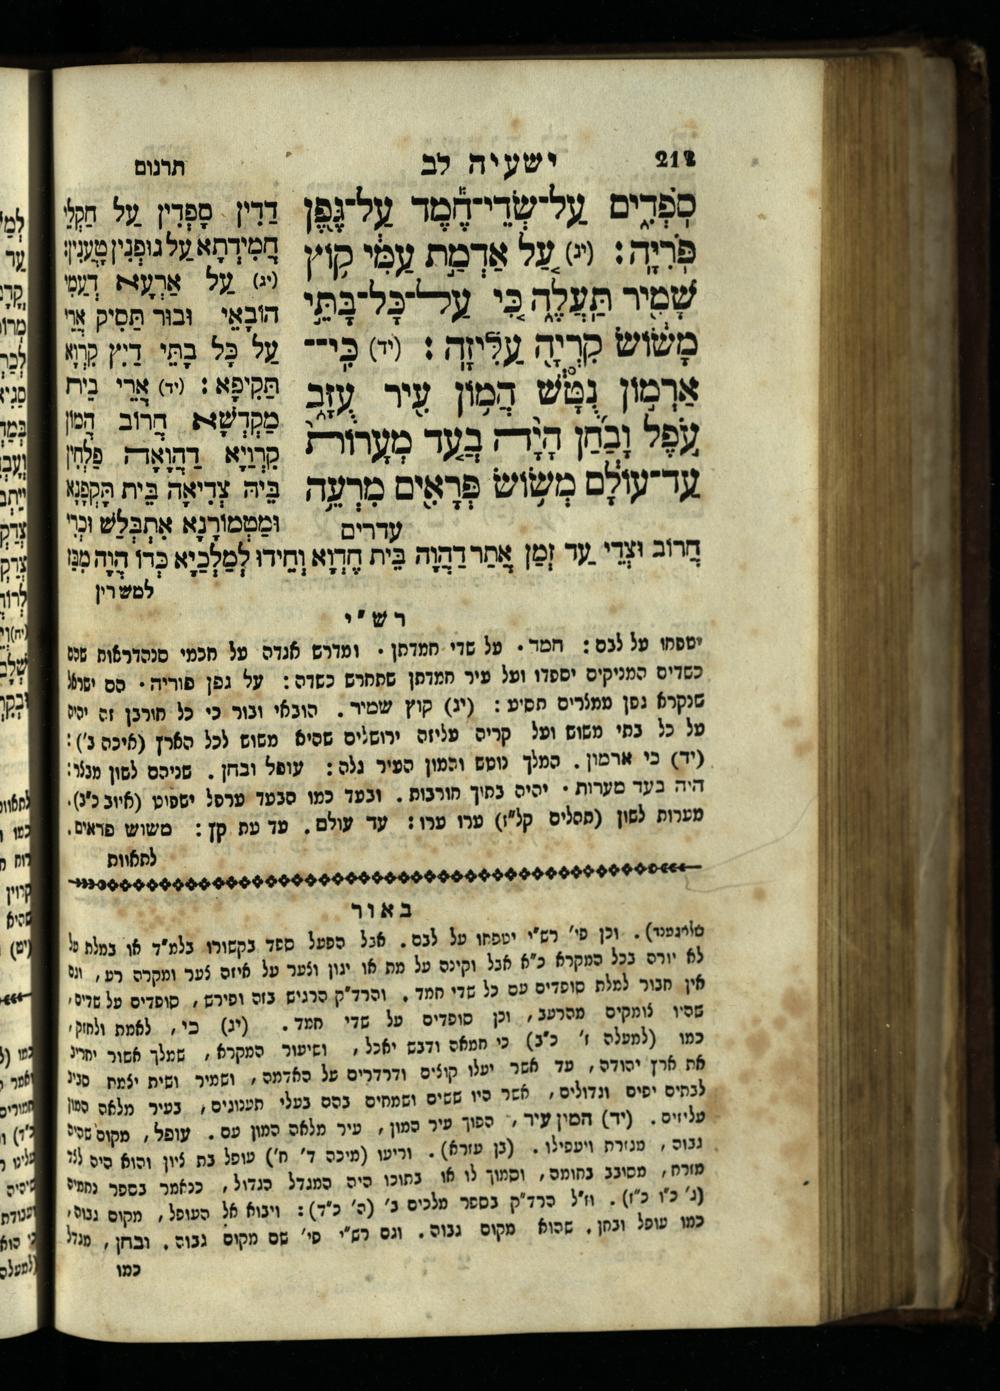 תרגום
ישעיה לב
212
סֹפְדִים עַל־שְׂדֵי־חֶמֶד עַל־גֶּפֶן
פֹּרִיָּה׃ (יג) עַל אַדְמַת עַמִּי קוֹץ
שָׁמִיר תַּעֲלֶה כִּי עַל־כָּל־בָּתֵּי
מָשׂוֹשׂ קִרְיָה עַלִּיזָה׃ (יד) כִּי־
אַרְמוֹן נֻטָּשׁ הֲמוֹן עִיר עֻזָּב
עֹפֶל וָבַחַן הָיָה בְעַד מְעָרוֹת
עַד־עוֹלָם מְשׂוֹשׂ פְּרָאִים מִרְעֵה
עדרים
דַדִין סָפְדִין עַל חַקְלֵי
חֲמִידְתָא עַל גוּפְנִין טָעֲנִין׃
(יג) עַל אַרְעָא דְעַמִי
הוֹבָאֵי וּבוּר תַּסִיק אֲרֵי
עַל כָּל בָתֵּי דִיץ קִרְוָא
תַּקִיפָא׃ (יד) אֲרֵי בֵית
מַקְדְשָׁא חֲרוֹב הֲמוֹן
קִרְוַיָא דַהֲוָאָה פַלְחִין
בֵּיהּ צְדִיאָה בֵּית תָּקְפָנָא
וּמַטְמוֹרָנָא אִתְבְּלַשׁ וּכְרֵי
חֲרוֹב וּצְדֵי עַד זְמַן אֲתַר דַהֲוָה בֵּית חֶדְוָא וְחֵידוּ לְמַלְכַיָא כְּדוֹ הֲוָה מִבַּז
למשרין
רש״י
יטפחו על לבם׃ חמד. על שדי חמדתן. ומדרש אגדה על חכמי סנהדראות שהם
כשדים המניקים יספדו ועל עיר חמדתן שתחרש כשדה׃ על גפן פוריה. הם ישראל
שנקרא גפן ממצרים תסיע׃ (יג) קוץ שמיר. הובאי ובור כי כל חורבן זה יהיה
על כל בתי משוש ועל קריה עליזה ירושלים שהיא משוש לכל הארץ (איכה ב׳)׃
(יד) כי ארמון. המלך נוטש והמון העיר גלה׃ עופל ובחן. שניהם לשון מבצר׃
היה בעד מערות. יהיה בתוך חורבות. ובעד כמו הבעד ערפל ישפוט (איוב כ״ב).
מערות לשון (תהלים קל״ז) ערו ערו׃ עד עולם. עד עת קץ׃ משוש פראים.
לתאות
באור
וכן פי׳ רש״י יטפחו על לבם. אבל הפעל ספד בקשורו בלמ״ד או במלת על
לא יורה בכל המקרא כ״א אבל וקינה על מת או יגון וצער על איזה צער ומקרה רע, וגם
אין חבור למלת סופדים עם כל שדי חמד. והרד״ק הרגיש בזה ופירש, סופדים על שדים,
שהיו צומקים מהרעב, וכן סופדים על שדי חמד. (יג) כי, לאמת ולחזק,
כמו (למעלה ז׳ כ״ב) כי חמאה ודבש יאכל, ושיעור המקרא, שמלך אשור יחריב
את ארץ יהודה, עד אשר יעלו קוצים ודרדרים על האדמה, ושמיר ושית יצמח סביב
לבתים יפים וגדולים, אשר היו ששים ושמחים בהם בעלי תענוגים, בעיר מלאה המון
עליזים. (יד) המון עיר, הפוך עיר המון, עיר מלאה המון עם. עופל, מקום שהיה
גבוה, מגזרת ויעפילו. (בן עזרא). וריעו (מיכה ד׳ ח׳) עופל בת ציון והוא היה לצד
מזרח, מסובב בחומה, וסמוך לו או בתוכו היה המגדל הגדול, כנאמר בספר נחמיה
(ג׳ כ״ו כ״ז). וז״ל הרד״ק בספר מלכים ב׳ (ה׳ כ״ד)׃ ויבוא אל העופל, מקום גבוה,
כמו עופל ובחן, שהוא מקום גבוה. וגם רש״י פי׳ שם מקום גבוה. ובחן, מגדל
כמו